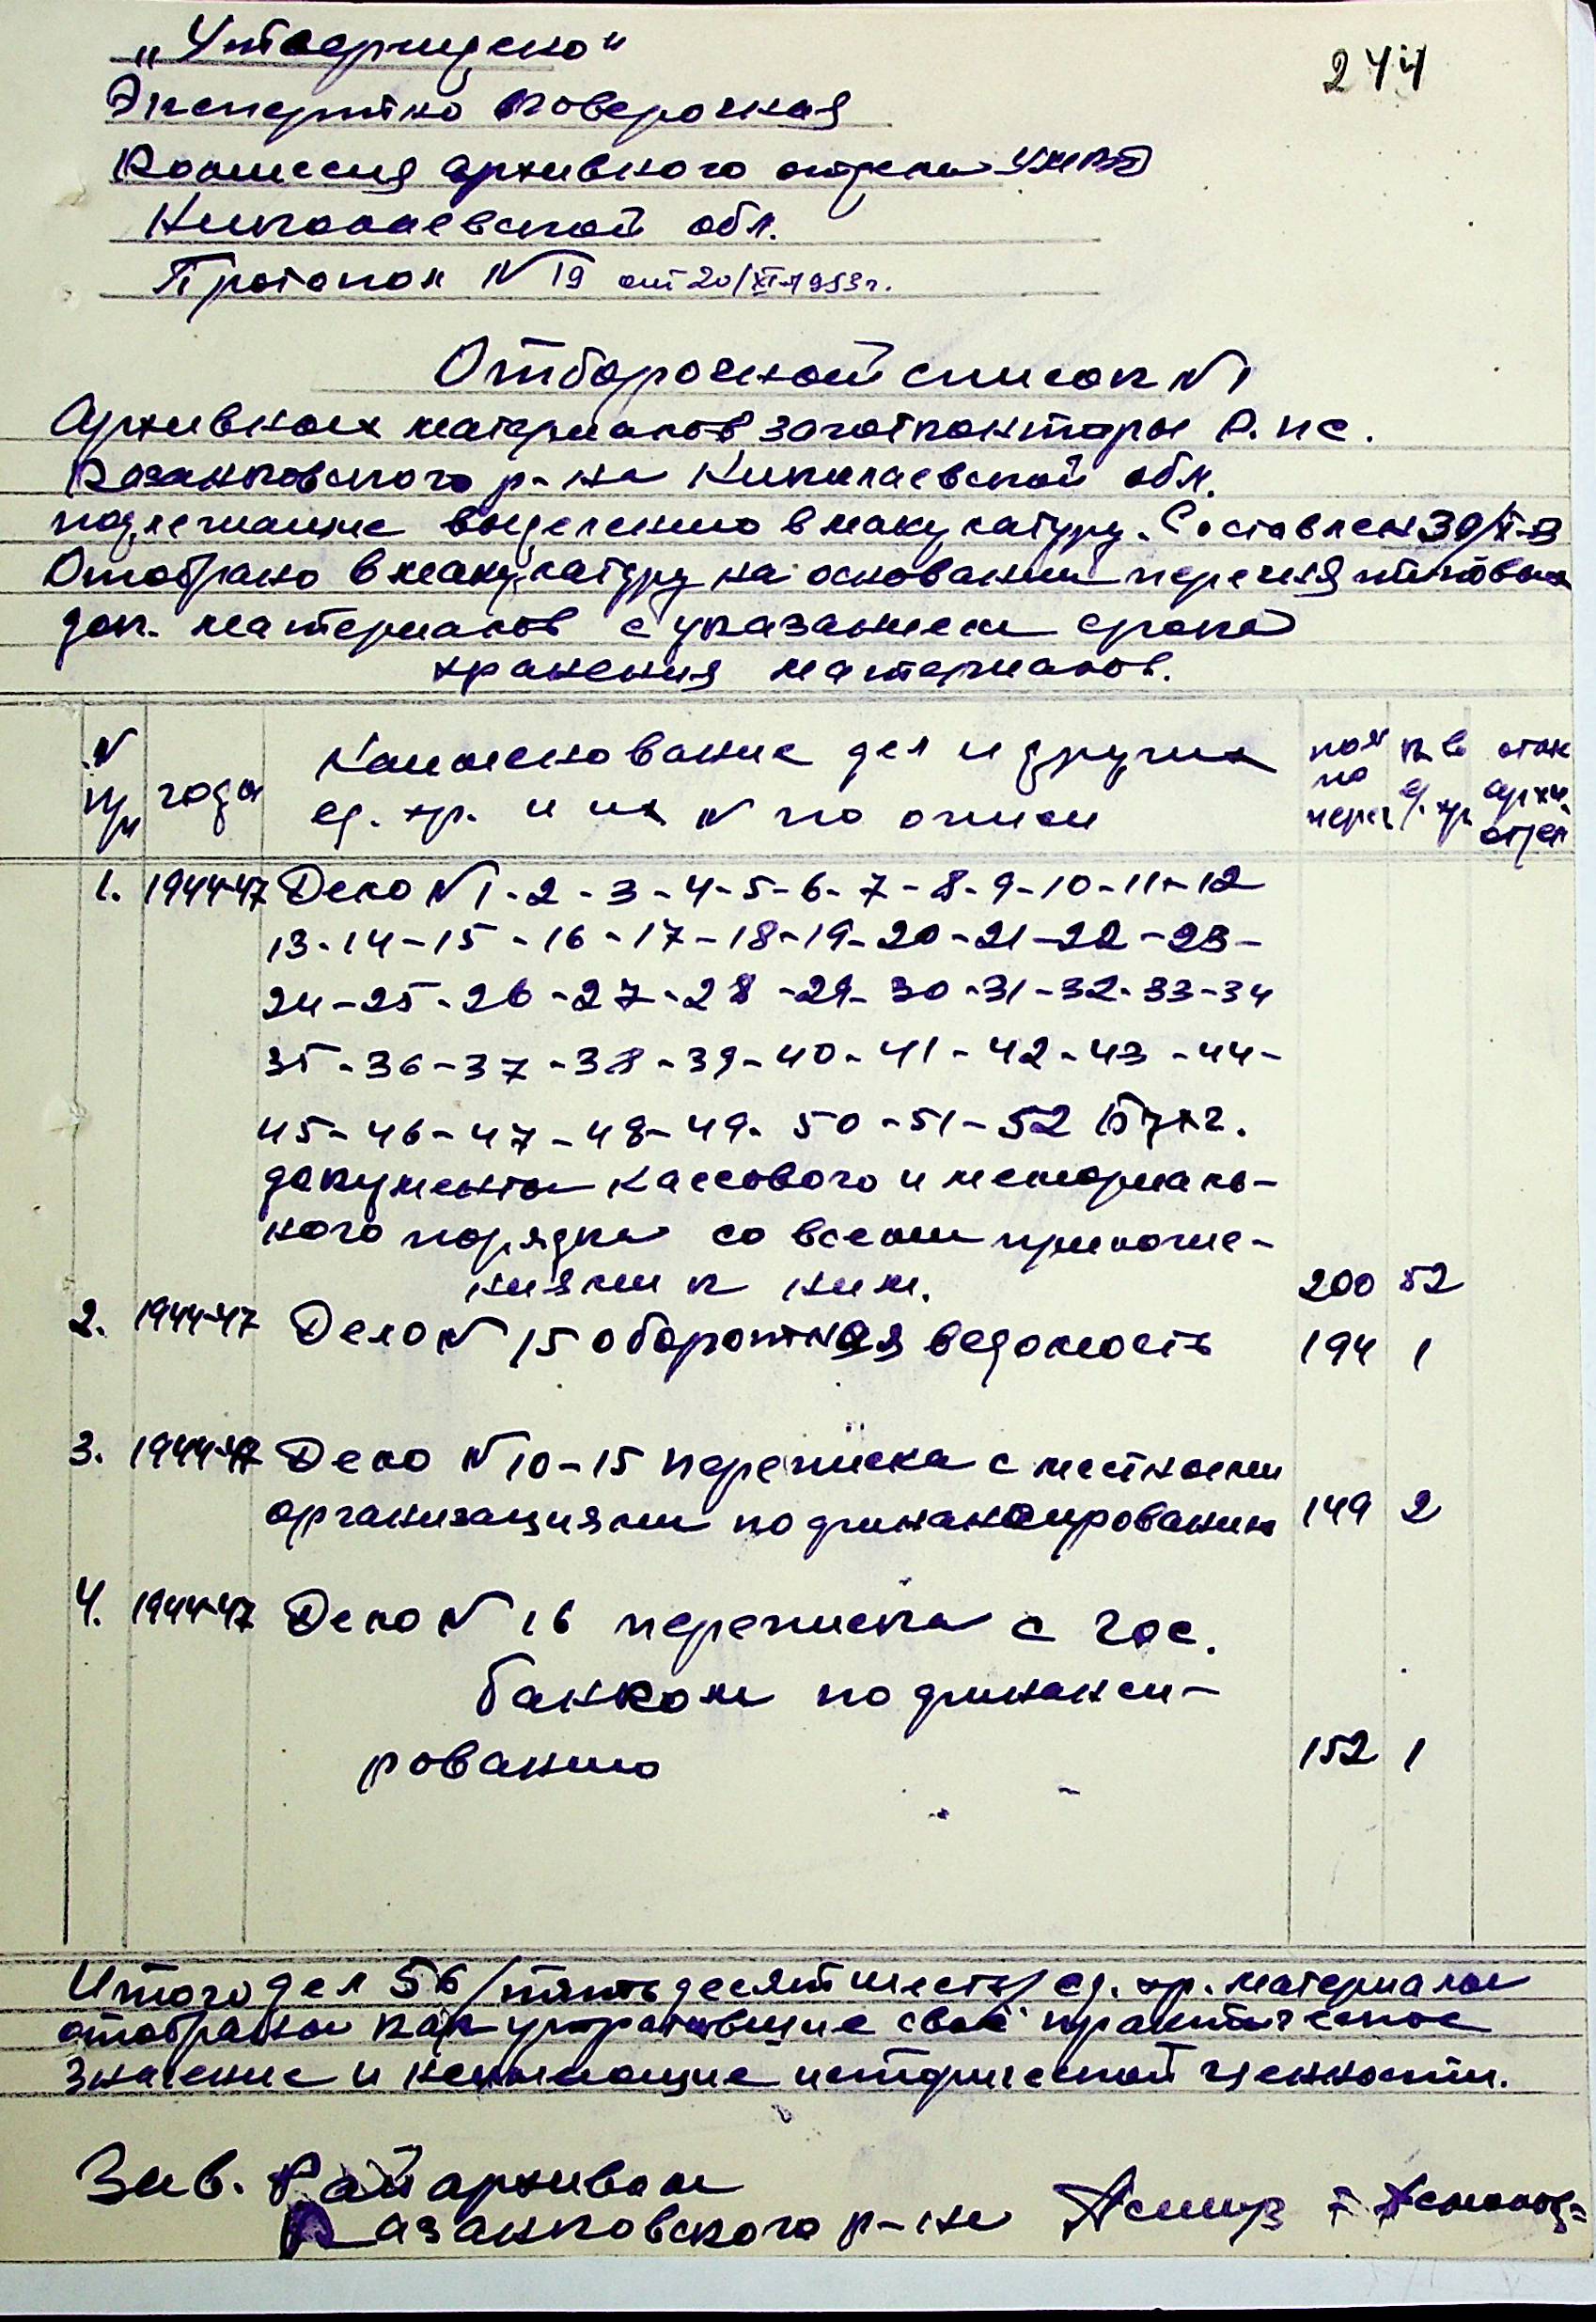 „Утверждено"
244
Экспертно поверочная
Комиссия архивного отдела УМВД
Николаевской обл.
Протокол № 19 от 20/XI-1953г.
Отборочной список № 1
Архивных материалов заготконторы Р.пс.
Казанковского р-на Николаевской обл.
подлежащие выделению в макулатуру. Составлен 30/X-53
Отобрано в макулатуру на основании перечня типовых
док. материалов с указанием срока
хранения материалов.
№ п/п годы Наименование дел и других ед. хр. и их № по описи пол по переч к-в ед. хр. отм архи. отдел
1. 1944-47 Дело № 1-2-3-4-5-6-7-8-9-10-11-12
13-14-15-16-17-18-19-20-21-22-23-
24-25-26-27-28-29-30-31-32-33-34
35-36-37-38-39-40-41-42-43-44-
45-46-47-48-49-50-51-52 Бухг.
документы кассового и мемориаль-
ного порядка со всеми приложе-
ниями к ним. 200 52
2. 1944-47 Дело № 15 оборотная ведомость 194 1
3. 1944-47 Дело № 10-15 переписка с местными
организациями по финансированию 149 2
4. 1944-47 Дело № 16 переписка с гос.
банком по финанси-
рованию 152 1
Итого дел 56 /пятьдесят шесть/ ед. хр. материалы
отобраны как утратившие своё практическое
значение и неимеющие исторической ценности.
Зав. Райархивом
Казанковского р-на